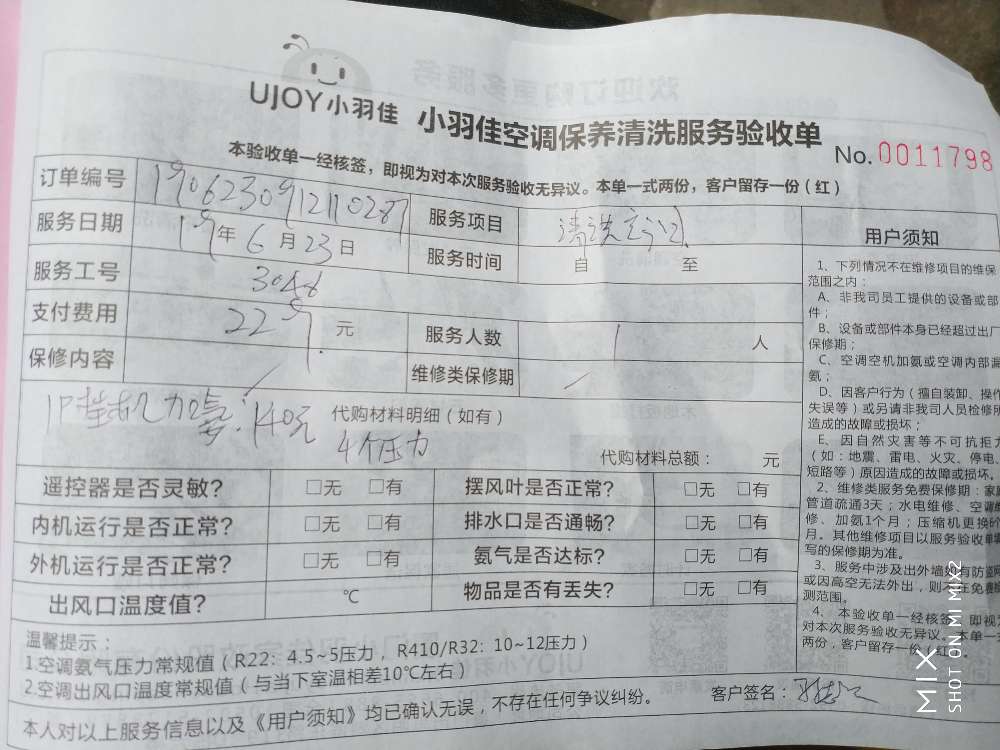 UJOY小羽佳 小羽佳空调保养清洗服务验收单
No.0011798
本验收单一经核签，即视为对本次服务验收无异议。本单一式两份，客户留存一份（红）
订单编号 服务项目
服务日期 19年6月23日 服务时间 自 至
服务工号
支付费用 元 服务人数 1 人
保修内容 维修类保修期
1P挂机加氨：140元 代购材料明细（如有）
4个压力 代购材料总额： 元
遥控器是否灵敏? □无 □有 摆风叶是否正常? □无 □有
内机运行是否正常? □无 □有 排水口是否通畅? □无 □有
外机运行是否正常? □无 □有 氨气是否达标? □无 □有
出风口温度值? ℃ 物品是否有丢失? □无 □有
温馨提示：
1.空调氨气压力常规值（R22：4.5~5压力，R410/R32：10~12压力）
2.空调出风口温度常规值（与当下室温相差10℃左右）
本人对以上服务信息以及《用户须知》均已确认无误，不存在任何争议纠纷。 客户签名：
用户须知
1、下列情况不在维修项目的维保
范围之内：
A、非我司员工提供的设备或部
件；
B、设备或部件本身已经超过出厂
保修期；
C、空调空机加氨或空调内部漏
氨；
D、因客户行为（擅自装卸、操作
失误等）或另请非我司人员检修所
造成的故障或损坏；
E、因自然灾害等不可抗拒力
（如：地震、雷电、火灾、停电、
短路等）原因造成的故障或损坏。
2、维修类服务免费保修期：家庭
管道疏通3天；水电维修、空调维
修、加氨1个月；压缩机更换
月。其他维修项目以服务验收单填
写的保修期为准。
3、服务中涉及出外墙如有防盗网
或因高空无法外出，则不在免费
测范围。
4、本验收单一经核签，即视为
对本次服务验收无异议。本单一式
两份，客户留存一份（红）。
MIX
SHOT ON MI MIX2